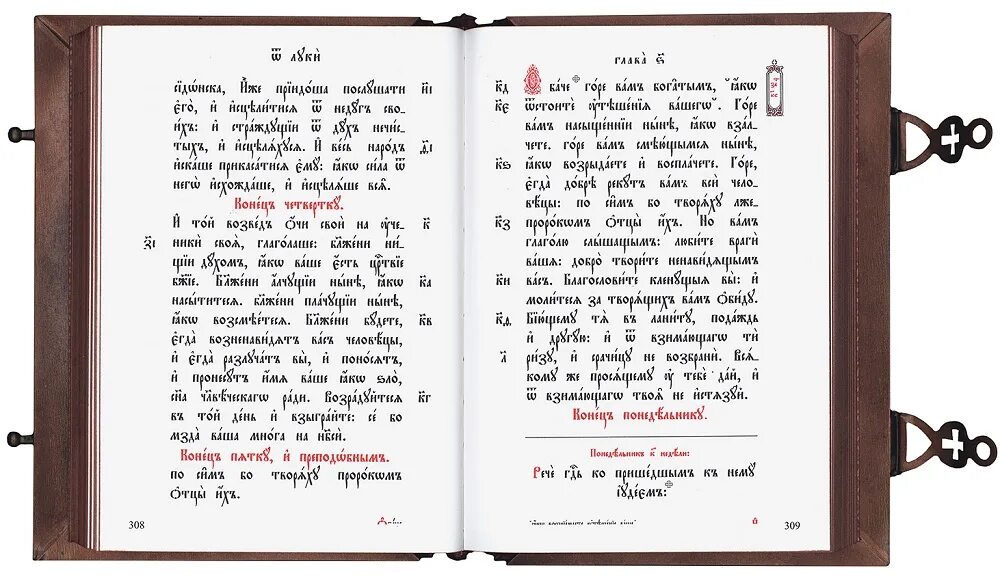 Ѿ лꙋкѝ
сїдѡ́нска, И҆̀же прїидо́ша послꙋ́шати
є҆гѡ̀, и҆ и҆сцѣли́тисѧ ѿ недꙋ̑гъ сво-
и́хъ: и҆ стра́ждꙋщїи ѿ дꙋ̑хъ нечи́-
стыхъ, и҆ и҆сцѣлѧ́хꙋсѧ. И҆ ве́сь наро́дъ
и҆ска́ше прикаса́тисѧ є҆мꙋ̀: ꙗ҆́кѡ си́ла ѿ
негѡ̀ и҆схожда́ше, и҆ и҆сцѣлѧ́ше всѧ̑.
Коне́цъ четверткꙋ̀.
И҆ то́й возве́дъ Ѻ҆́чи своѝ на ᲂу҆че-
никѝ своѧ̑, глаго́лаше: бл҃же́ни ни́-
щїи дꙋ́хомъ, ꙗ҆́кѡ ва́ше є҆́сть црⷭ҇твїе
бж҃їе. Бл҃же́ни а҆́лчꙋщїи ны́нѣ, ꙗ҆́кѡ
насы́титесѧ. бл҃же́ни пла́чꙋщїи ны́нѣ,
ꙗ҆́кѡ возсмѣе́тесѧ. Бл҃же́ни бꙋ́дете,
є҆гда̀ возненави́дѧтъ ва́съ человѣ́цы,
и҆ є҆гда̀ разлꙋча́тъ вы̀, и҆ поно́сѧтъ,
и҆ пронесꙋ́тъ и҆́мѧ ва́ше ꙗ҆́кѡ ѕло̀,
сн҃а чл҃вѣ́ческагѡ ра́ди. Возра́дꙋйтесѧ
въ то́й де́нь и҆ взыгра́йте: се́ бо
мзда̀ ва́ша мно́га на нб҃сѝ.
Коне́цъ пѧткꙋ̀, и҆ преподѡ́бнымъ.
по си̑мъ бо творѧ́хꙋ прⷪ҇ро́комъ
Ѻ҆тцы̀ и҆́хъ.
к҃
к҃а
к҃в
к҃г
308
глава̀ ѕ҃
Ѻ҆ба́че го́ре ва́мъ бога́тымъ, ꙗ҆́кѡ
ѿстоитѐ ᲂу҆тѣше́нїѧ ва́шегѡ. Го́ре
ва́мъ насы́щеннїи ны́нѣ, ꙗ҆́кѡ вза́л-
чете. го́ре ва́мъ смѣю́щымсѧ ны́нѣ,
ꙗ҆́кѡ возрыда́ете и҆ воспла́чете. Го́ре,
є҆гда̀ до́брѣ рекꙋ́тъ ва́мъ всѝ чело-
вѣ́цы: по си̑мъ бо творѧ́хꙋ лже-
проро́комъ Ѻ҆тцы̀ и҆́хъ. Но ва́мъ
глаго́лю слы́шащымъ: люби́те врагѝ
ва́шѧ: добро̀ твори́те ненави́дѧщымъ
ва́съ. Благослови́те кленꙋ́щыѧ вы̀: и҆
моли́тесѧ за творѧ́щихъ ва́мъ Ѻ҆би́дꙋ.
Бїю́щемꙋ тѧ̀ въ лани́тꙋ, пода́ждь
и҆ дрꙋгꙋ́ю: и҆ ѿ взима́ющагѡ тѝ
ри́зꙋ, и҆ срачи́цꙋ не возбранѝ. Всѧ́-
комꙋ же просѧ́щемꙋ ᲂу҆ тебє̀ да́й, и҆
ѿ взима́ющагѡ твоѧ̑ не и҆стѧзꙋ́й.
Коне́цъ понедѣ́льникꙋ.
к҃д
к҃є
к҃ѕ
к҃з
к҃и
к҃ѳ
л҃
Понедѣ́льникъ к҃ недѣ́ли:
Речѐ гдⷭ҇ь ко прише́дшымъ къ немꙋ̀
і҆ꙋде́ємъ:
309